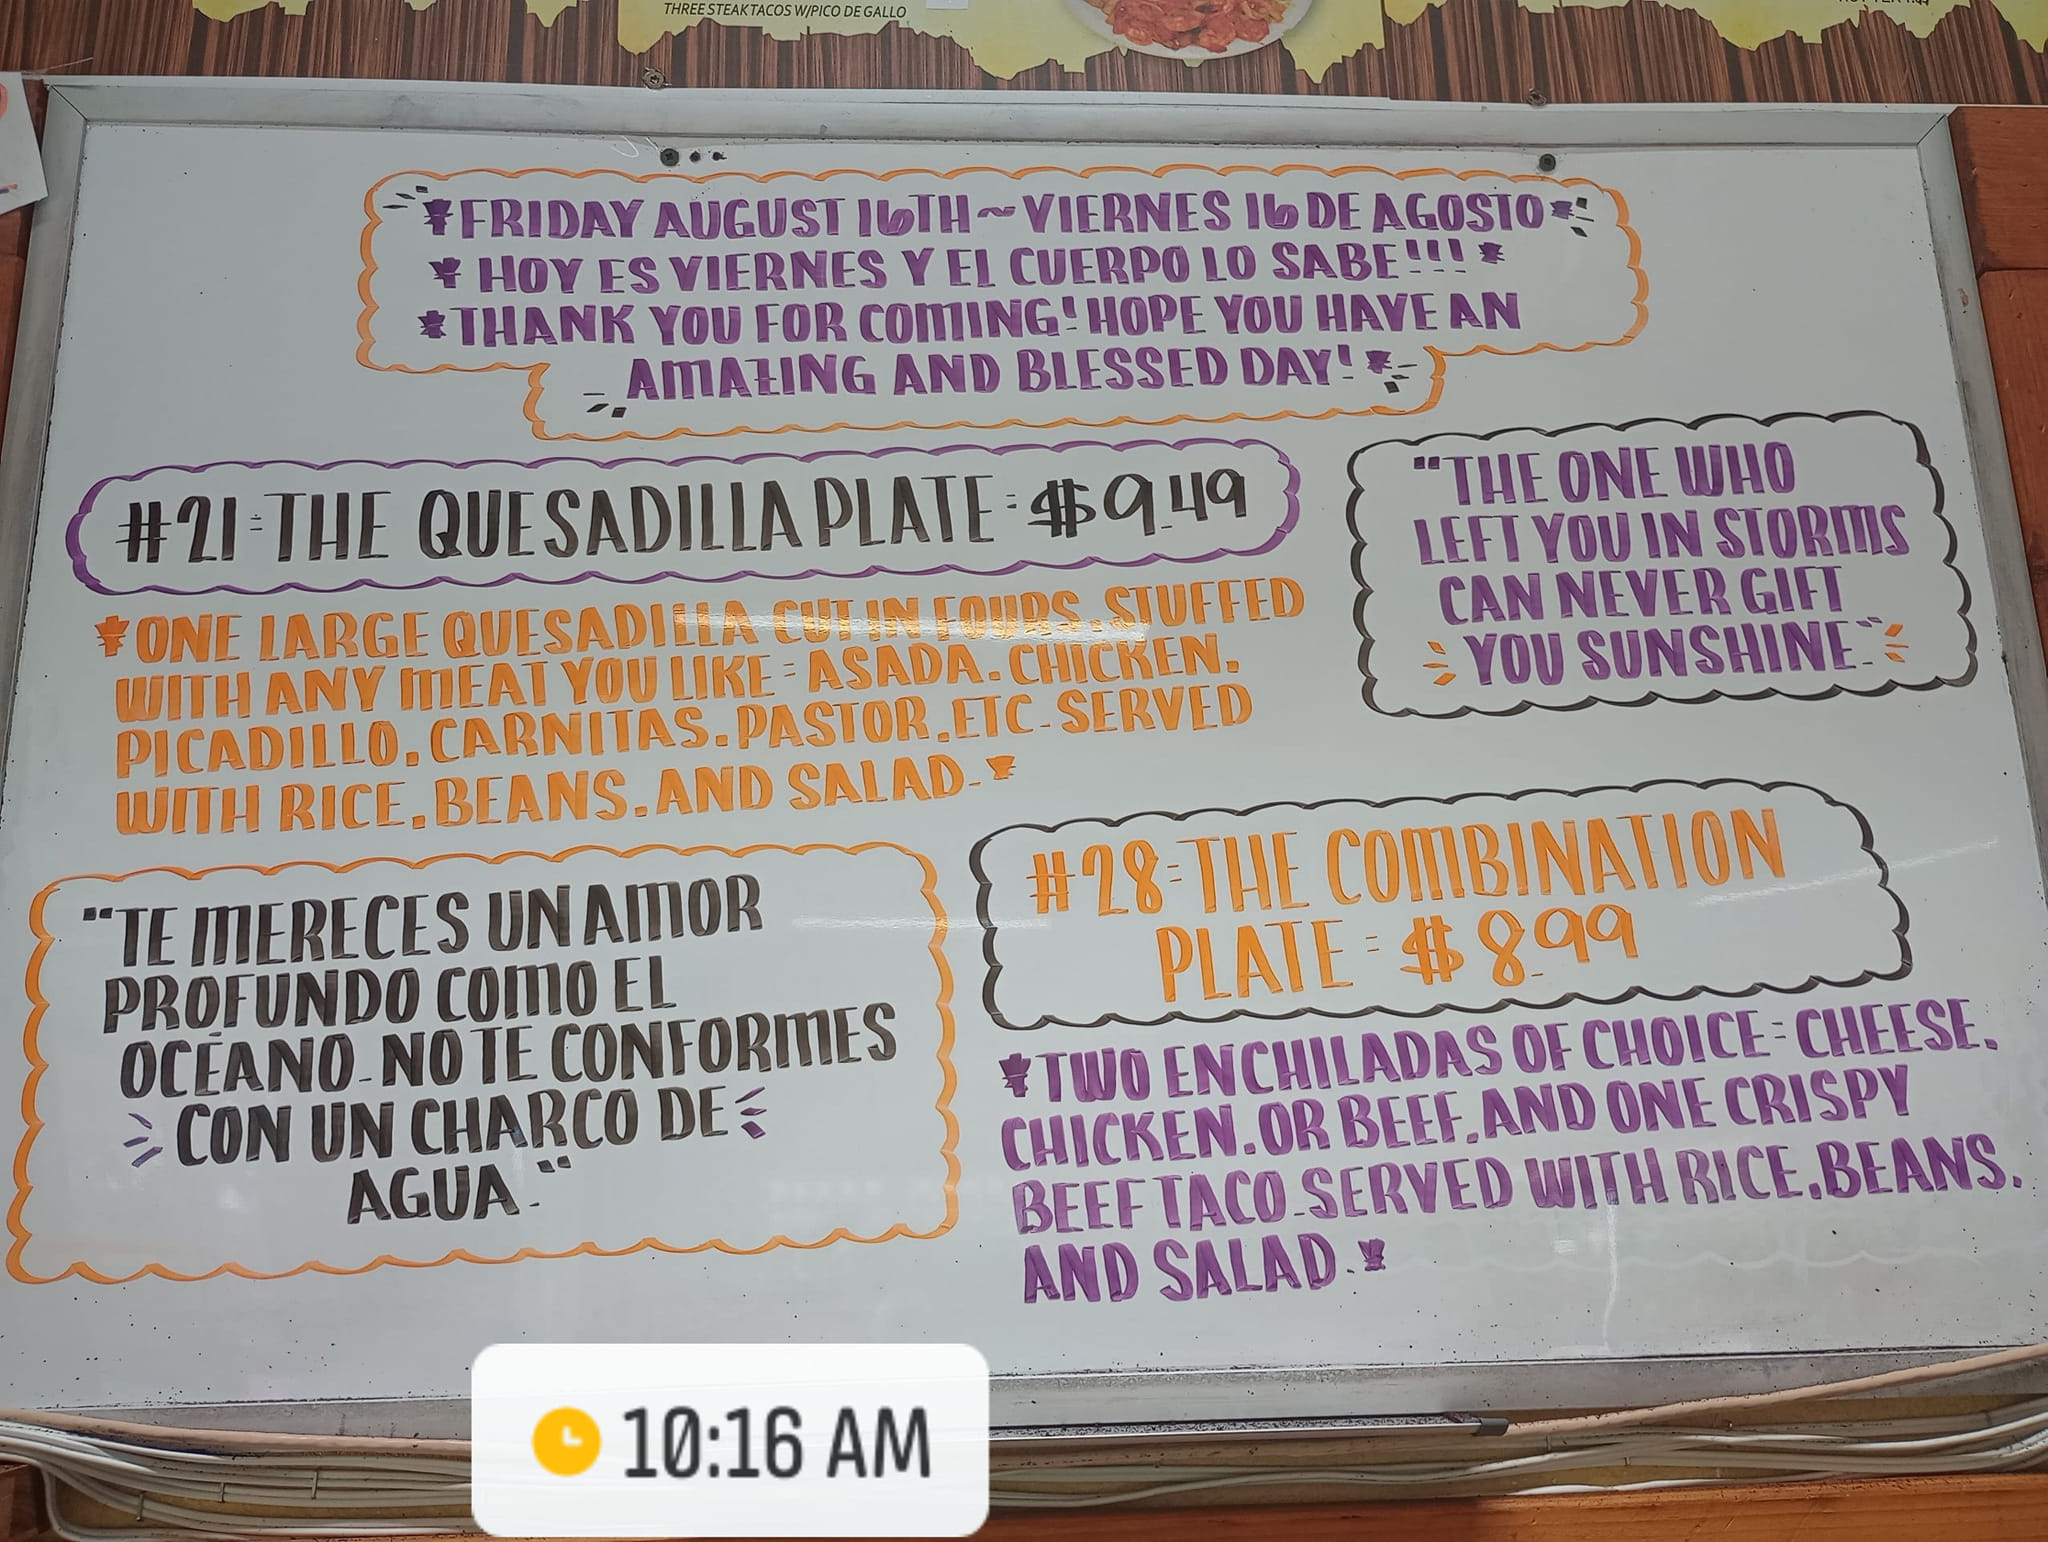 THREE STEAK TACOS W/PICO DE GALLO
*FRIDAY AUGUST 16TH ~ VIERNES 16 DE AGOSTO*
* HOY ES VIERNES Y EL CUERPO LO SABE!!! *
*THANK YOU FOR COMING! HOPE YOU HAVE AN
AMAZING AND BLESSED DAY! *
#21: THE QUESADILLA PLATE: $9.49
*ONE LARGE QUESADILLA CUT IN FOURS, STUFFED
WITH ANY MEAT YOU LIKE: ASADA, CHICKEN,
PICADILLO, CARNITAS, PASTOR, ETC. SERVED
WITH RICE, BEANS, AND SALAD.*
"THE ONE WHO
LEFT YOU IN STORMS
CAN NEVER GIFT
YOU SUNSHINE."
"TE MERECES UN AMOR
PROFUNDO COMO EL
OCÉANO. NO TE CONFORMES
CON UN CHARCO DE
AGUA."
#28: THE COMBINATION
PLATE: $8.99
*TWO ENCHILADAS OF CHOICE: CHEESE,
CHICKEN, OR BEEF, AND ONE CRISPY
BEEF TACO. SERVED WITH RICE, BEANS,
AND SALAD.*
10:16 AM